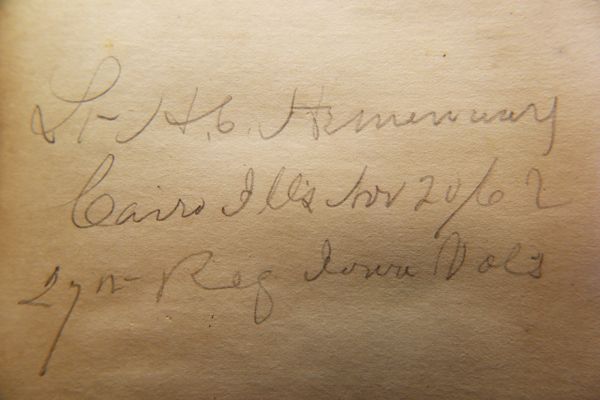 Lt H. C. Hemenway
Cairo Ills Nov 20/62
27th Reg Iowa Vols